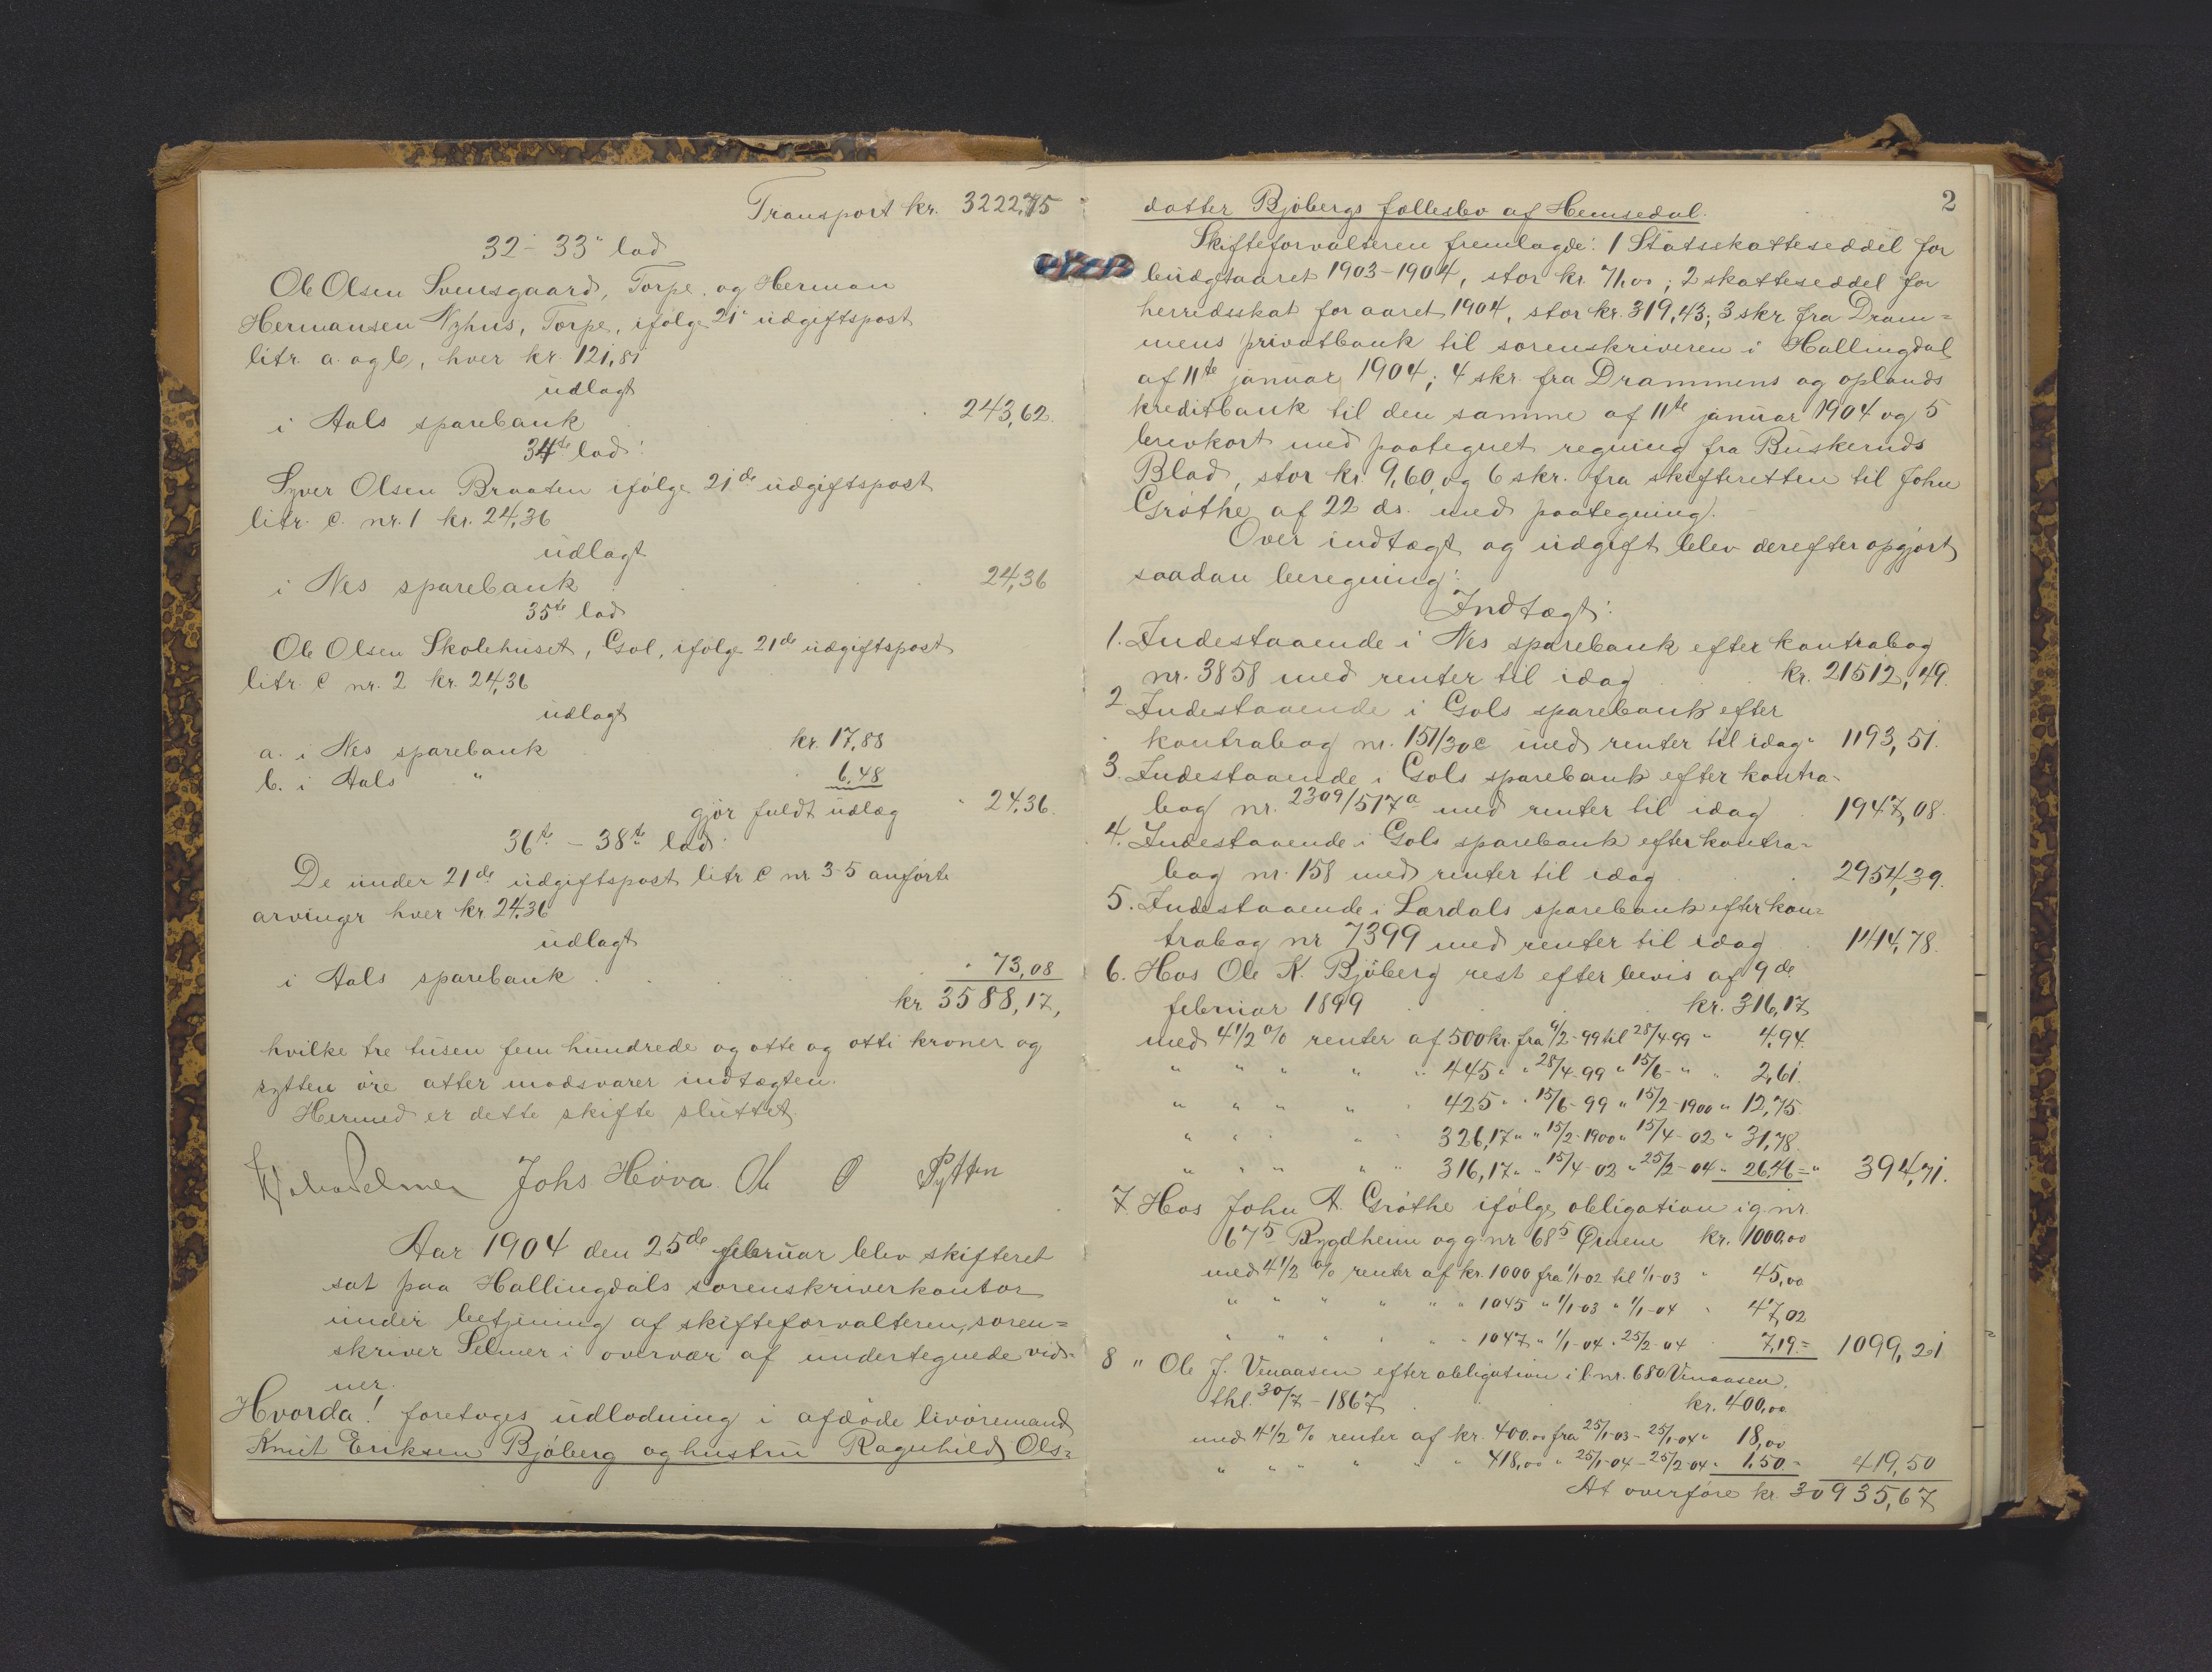 Transport kr. 3222,75
32 - 33" lod
Ole Olsen Svensgaard, Torpe, og Herman
Hermansen Nyhus, Torpe, ifølge 21" udgiftspost
litr. a. og b, hver kr. 121,81
udlagt
i Aals sparebank 243,62.
34te lod:
Syver Olsen Braaten ifølge 21de udgiftspost
litr. c. nr. 1 kr. 24,36
udlagt
i Nes sparebank 24,36
35te lod
Ole Olsen Skolehuset, Gol, ifølge 21de udgiftspost
litr. c nr. 2 kr. 24,36
udlagt
a. i Nes sparebank kr. 17,88
b. i Aals " 6,48
gjør fuldt udlæg " 24,36.
36te - 38te lod
De under 21de udgiftspost litr c nr 3-5 anførte
arvinger hver kr. 24,36
udlagt
i Aals sparebank " 73,08
kr. 3588,17,
hvilke tre tusen fem hundrede og otte og otti kroner og
sytten øre atter modsvarer indtægten.
Hermed er dette skifte sluttet.
Selmer Johs Heiva Ole O Pytten
Aar 1904 den 25de februar blev skifteret
sat paa Hallingdals sorenskriverkontor
under betjening af skifteforvalteren, soren=
skriver Selmer i overvær af undertegnede vid=
ner.
Hvorda! foretoges udlodning i afdøde livøremand
Knut Eriksen Bjøberg og hustru Ragnhild Ols=
2
datter Bjøbergs fællesbo af Hemsedal.
Skifteforvalteren fremlagde: 1 Statsskatteseddel for
budgetaaret 1903-1904, stor kr. 71,00; 2 skatteseddel for
herredsskat for aaret 1904, stor kr. 319,43; 3 skr. fra Dram=
mens privatbank til sorenskriveren i Hallingdal
af 11te januar 1904; 4 skr. fra Drammens og oplands
kreditbank til den samme af 11te januar 1904 og 5
brevkort med paategnet regning fra Buskeruds
Blad, stor kr. 9,60, og 6 skr. fra skifteretten til John
Grøthe af 22 ds. med paategning.
Over indtægt og udgift blev derefter opgjort
saadan beregning:
Indtægt:
1. Indestaaende i Nes sparebank efter kontrabog
nr. 3858 med renter til idag kr. 21512,49.
2. Indestaaende i Gols sparebank efter
kontrabog nr. 151/30c med renter til idag " 1193,51.
3. Indestaaende i Gols sparebank efter kontra-
bog nr. 2309/517a med renter til idag 1947,08.
4. Indestaaende i Gols sparebank efter kontra-
bog nr. 158 med renter til idag 2954,39.
5. Indestaaende i Lærdals sparebank efter kon=
trabog nr 7399 med renter til idag 1414,78.
6. Hos Ole K. Bjøberg rest efter bevis af 9de
februar 1899 kr. 316,17
med 4 1/2 % renter af 500 kr. fra 9/2-99 til 28/4-99 " 4,94.
" " " " " 445 " " 28/4-99 " 15/6- " " 2,61.
" " " " " 425 " " 15/6-99 " 15/2-1900 " 12,75.
" " " " " 326,17 " " 15/2-1900 " 15/4-02 " 31,78
" " " " " 316,17 " " 15/4-02 " 25/2-04 " 26,46 = " 394,71.
7. Hos John A. Grøthe ifølge obligation i g. nr.
67 5 Bygdheim og g. nr 68 5 Ørnene kr. 1000,00
med 4 1/2 % renter af kr. 1000 fra 1/1-02 til 1/1-03 " 45,00
" " " " " " 1045 " 1/1-03 " 1/1-04 " 47,02
" " " " " " 1047 " 1/1-04 " 25/2-04 " 7,19 = 1099,21
8 " Ole J. Venaasen efter obligation i l. nr. 680 Venaasen.
thl. 30/7-1867 kr. 400,00
med 4 1/2 % renter af kr. 400,00 fra 25/1-03 - 25/1-04 " 18,00
" " " " " " 418,00 " 25/1-04 - 25/2-04 " 1,50. = 419,50
At overføre kr. 30935,67